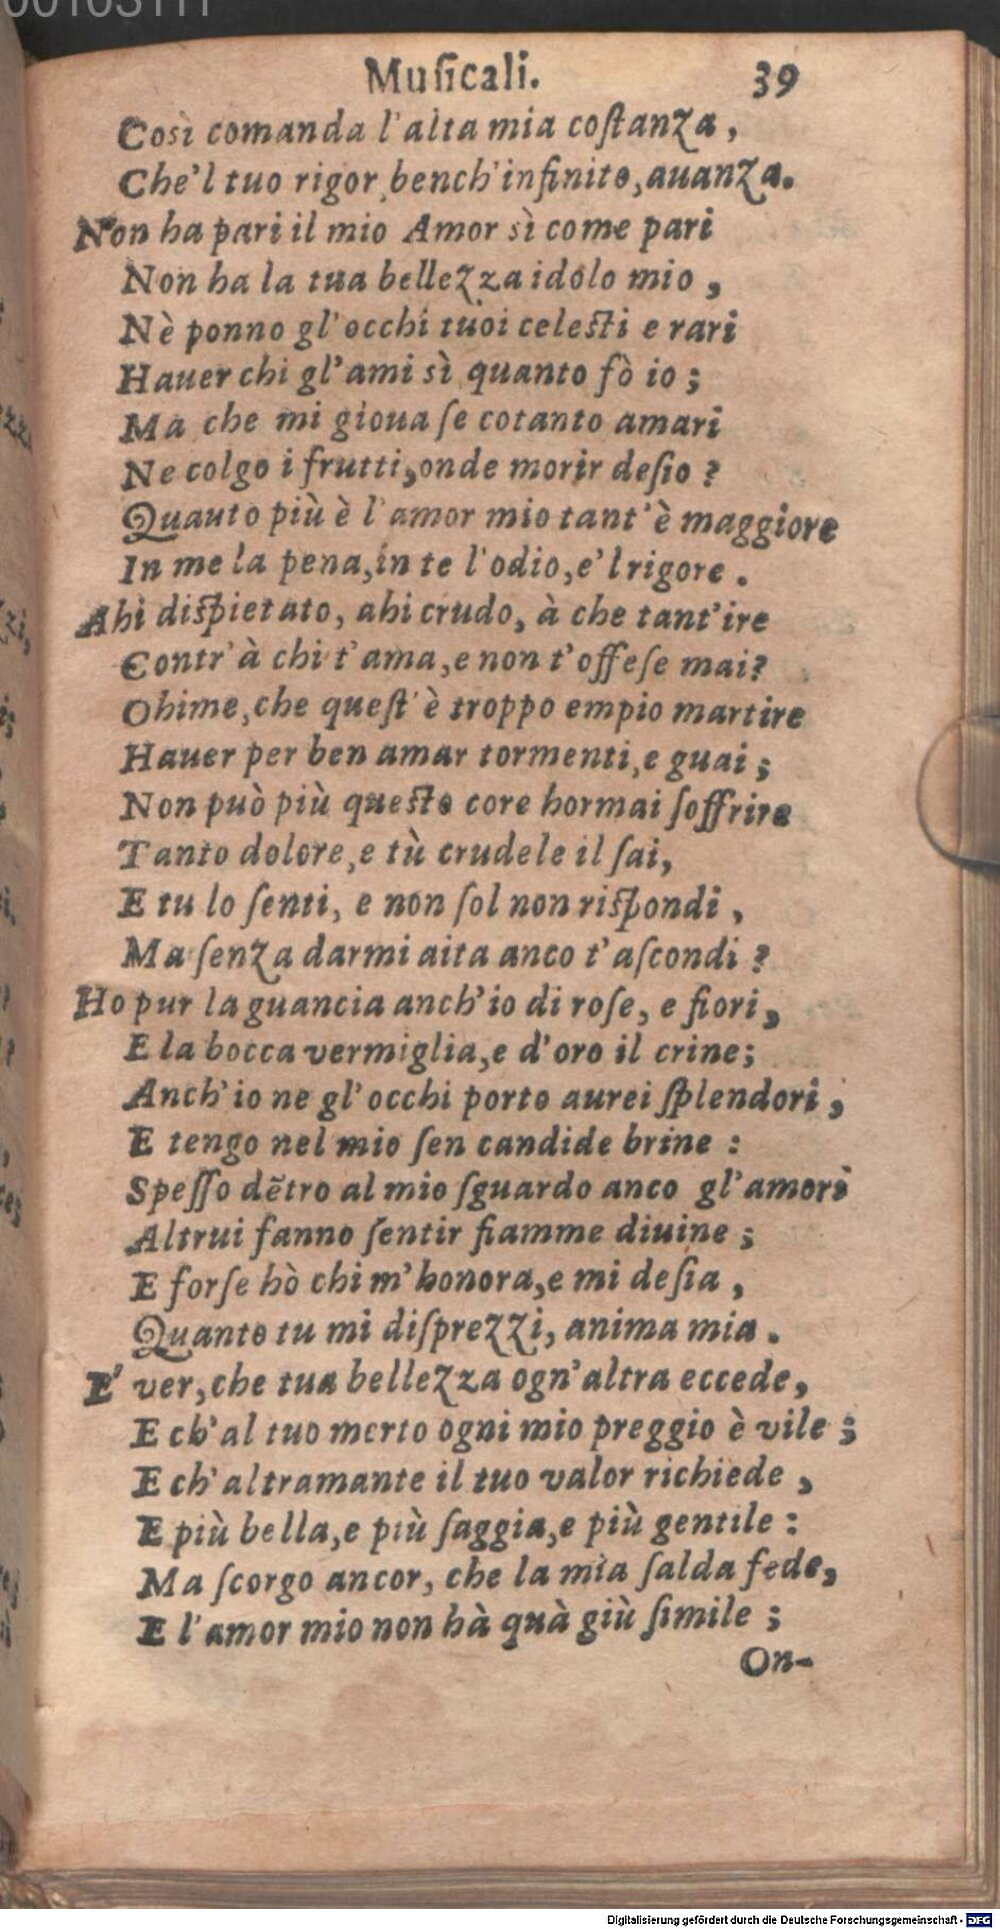 00103111
Musicali. 39
Così comanda l'alta mia costanza,
Che'l tuo rigor bench'infinito, auanza.
Non ha pari il mio Amor sì come pari
Non ha la tua bellezza idolo mio,
Nè ponno gl'occhi tuoi celesti e rari
Hauer chi gl'ami sì quanto fò io;
Ma che mi gioua se cotanto amari
Ne colgo i frutti, onde morir desio?
Quauto più è l'amor mio tant'è maggiore
In me la pena, in te l'odio, e'l rigore.
Ahi dispietato, ahi crudo, à che tant'ire
Contr'à chi t'ama, e non t'offese mai?
Ohime, che quest'è troppo empio martire
Hauer per ben amar tormenti, e guai;
Non può più questo core hormai soffrire
Tanto dolore, e tù crudele il sai,
E tu lo senti, e non sol non rispondi,
Ma senza darmi aita anco t'ascondi?
Ho pur la guancia anch'io di rose, e fiori,
E la bocca vermiglia, e d'oro il crine;
Anch'io ne gl'occhi porto aurei splendori,
E tengo nel mio sen candide brine:
Spesso dẽtro al mio sguardo anco gl'amori
Altrui fanno sentir fiamme diuine;
E forse hò chi m'honora, e mi desia,
Quanto tu mi disprezzi, anima mia.
E' ver, che tua bellezza ogn'altra eccede,
E ch'al tuo merto ogni mio preggio è vile;
E ch'altramante il tuo valor richiede,
E più bella, e più saggia, e più gentile:
Ma scorgo ancor, che la mia salda fede,
E l'amor mio non hà quà giù simile;
On-
Digitalisierung gefördert durch die Deutsche Forschungsgemeinschaft - DFG